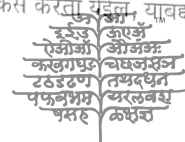 कस करता येईल, यावह
अ आ
इ ई उ ऊ ए ऐ
ऐ ओ औ औ अं अः
क ख ग घ ङ च छ ज झ ञ
ट ठ ड ढ ण त थ द ध न
प फ ब भ म य र ल व श
ष स ह ळ क्ष ज्ञ
TM